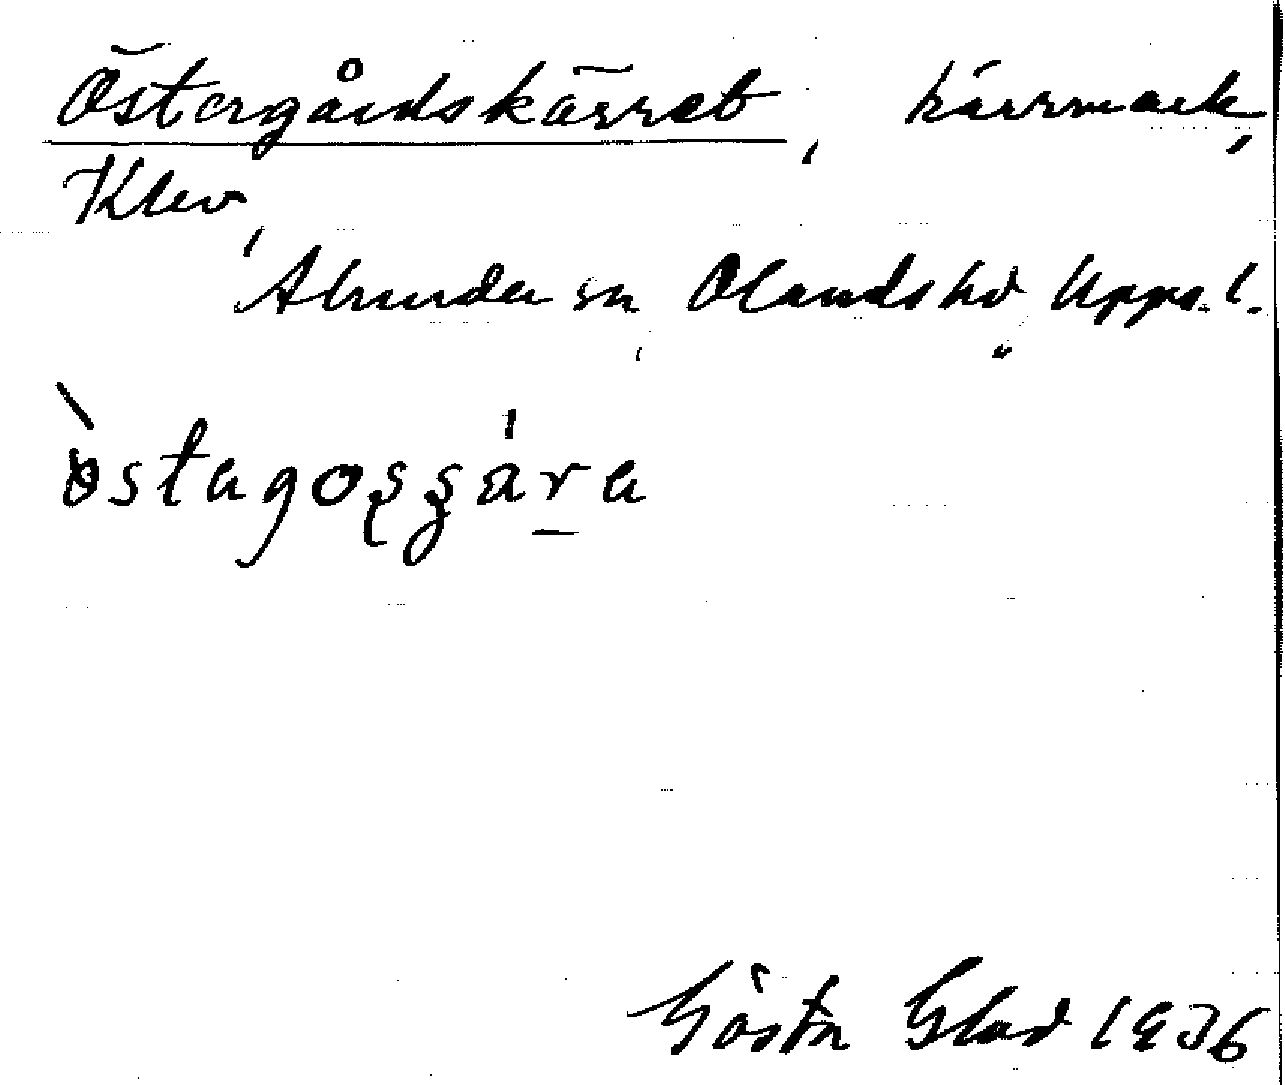 Östergårdskärret, kärrmark,
Klev,
Alunda sn, Olands hd, Upps. l.
östagossära
Gösta Glad 1936